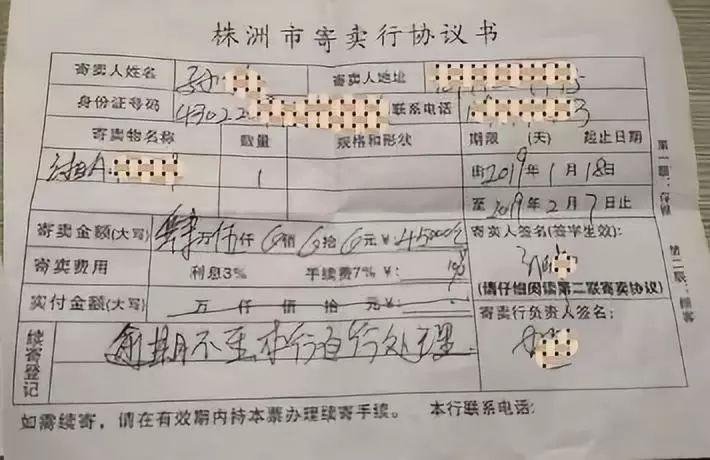 株洲市寄卖行协议书
寄卖人姓名 孙 寄卖人地址
身份证号码 43022 联系电话 3
寄卖物名称 数量 规格和形状 期限 (天) 起止日期
湘A 1 由2019年1月18日
至2019年2月7日止
寄卖金额(大写) 肆万伍仟0佰0拾0元￥:45000元 寄卖人签名(签字生效):
寄卖费用 利息3% 手续费7% ￥:
(请仔细阅读第二联寄卖协议)
实付金额(大写) 万 仟 佰 拾 元￥: 寄卖行负责人签名:
续寄登记 逾期不至本行自行处理
如需续寄，请在有效期内持本票办理续寄手续。 本行联系电话:
第一联：存根
第二联：顾客